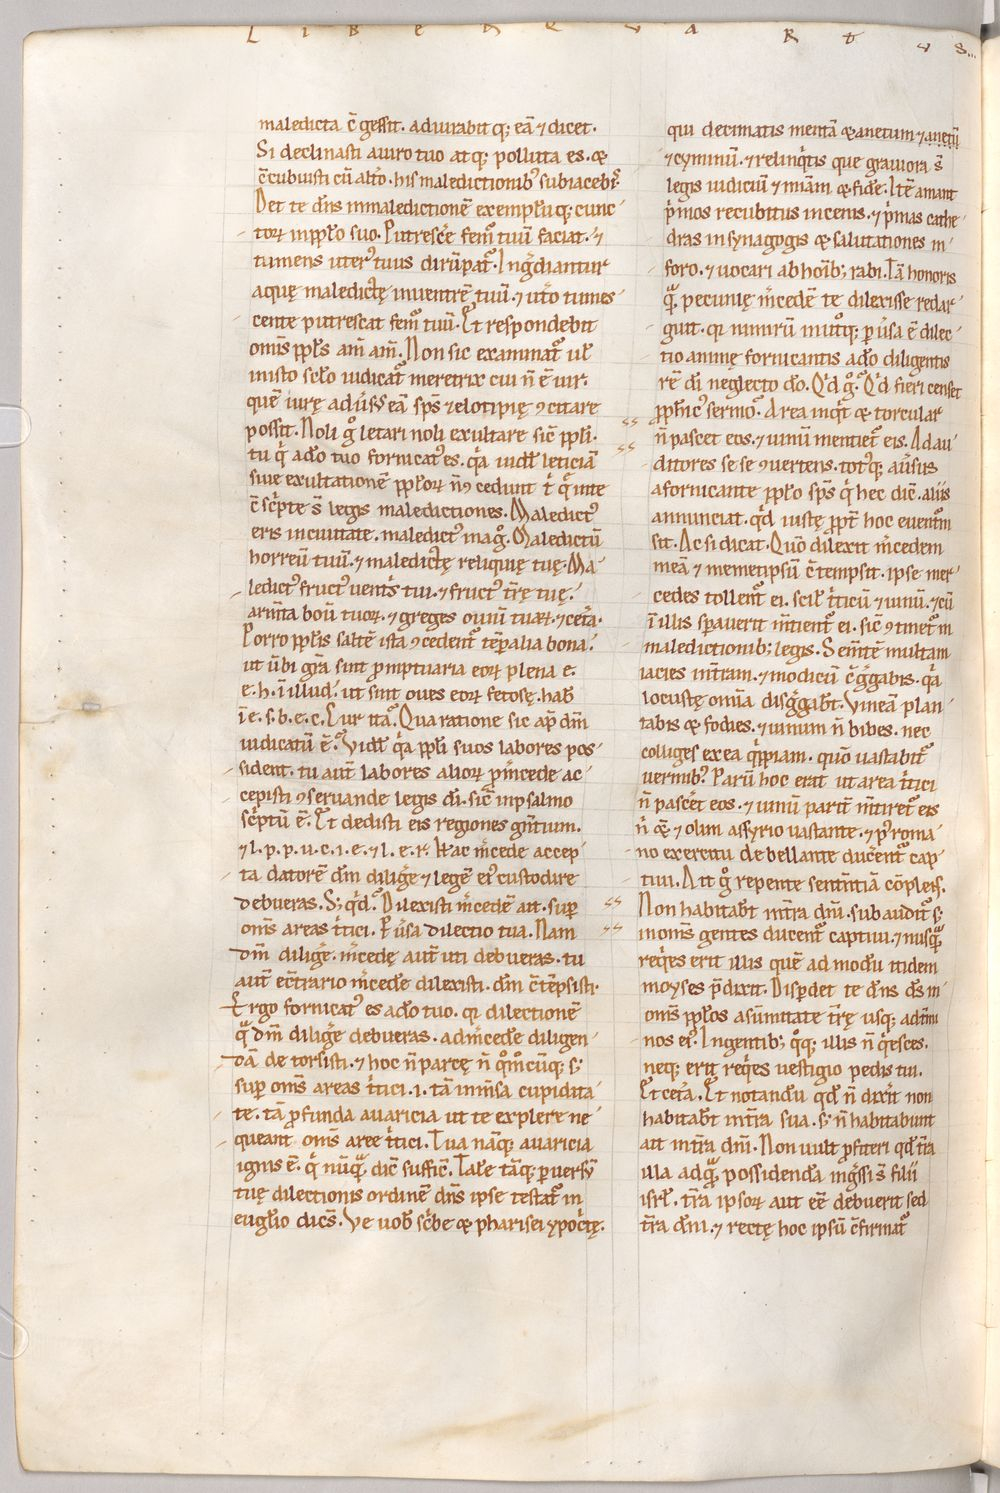 L I B E R Q V A R T V S
maledicta c̄ gessit. adiurabit q; eā ⁊ dicet.
Si declinasti a uiro tuo atq; polluta es. &
c̄cubuisti cū alt̄o. his maledictionib' subiacebis.
Det te dn̄s in maledictionē exemplūq; cunc
toꝝ in pp̄lo suo. Putresc̄e fem̄ tuū faciat. ⁊
tumens uter' tuus dirūpat᷑. Ingrediantur
aquę maledictę in uentrē tuū. ⁊ ut̄o tumes
cente putrescat fem̄ tuū. Et respondebit
om̄is pp̄ls am̄ am̄. Non sic examinat᷑ ul̄
in isto sc̄lo iudicat᷑ meretrix cui n̄ ē uir.
quē iurę aduersus eā sps̄ zelotipię ꝯcitare
possit. Noli g̊ letari noli exultare sic̄ pp̄li.
tu q̇ a dō tuo fornicat' es. q̇a uidel̄ leticiā
siue exultationē pp̄loꝝ n̄ ꝯcedunt t̄ q̄ in te
c̄sc̄pte s̄ legis maledictiones. Maledict'
eris in ciuitate. maledict' in agō. Maledictū
horreū tuū. ⁊ maledictę reliquię tuę. Ma
ledict' fruct' uent̄s tui. ⁊ fruct' t̄rę tuę.
arm̄ta boū tuoꝝ. ⁊ greges ouiū tuaꝝ. ⁊ cet̄a.
Porro pp̄lis saltē ista ꝯcedent᷑ tēp̄alia bona.
ut ūbi gr̄a sint promptuaria eoꝝ plena e.
e. h. ī illud. ut sint oues eoꝝ fetosę. hab̄
ī e. s. b. e. c. Cur ita. Qua ratione sic ap̄ dm̄
iudicatū ē. Videl̄ q̇a pp̄li suos labores pos
sident. tu aut̄ labores alioꝝ p m̄cede ac
cepisti ꝯseruande legis dī. sic̄ in psalmo
sc̄ptū ē. Et dedisti eis regiones gn̄tium.
⁊ l. p. p. u. c. i. e. ⁊ l. e. r. Hac m̄cede accep
ta datorē dm̄ diliḡe ⁊ legē ei' custodire
debueras. S; qd̄. Dilexisti m̄cedē ait. sup̄
om̄s areas t̄tici. Puersa dilectio tua. Nam
dm̄ diliḡe. m̄cedę aut̄ uti debueras. tu
aut̄ ec̄trario m̄cedē dilexisti. dm̄ c̄tēpsisti.
Ergo fornicat' es a dō tuo. qi dilectionē
q̄ dm̄ diliḡe debueras. ad m̄cedē diligen
dā detorsisti. ⁊ hoc n̄ parcę n̄ q̊m̊cūq; s;
sup̄ om̄s areas t̄tici. i. tā inm̄sa cupidita
te. tā profunda auaricia ut te explere ne
queant om̄s aree t̄tici. Tua nāq; auaricia
ignis ē. q̇ nūq̄ dic̄ suffic̄. Talē tāq; peruersū
tuę dilectionis ordinē dn̄s ipse testat᷑ in
eugl̄io dicēs. Ve uob̄ sc̄be & pharisei ypoc̄tę.
qui decimatis mentā & anetum ⁊ anetū
⁊ cyminū. ⁊ relinq̇tis que grauiora s̄
legis iudiciū ⁊ mīam & fidē. Itē amant
ṗmos recubitus in cenis. ⁊ ṗmas cathe
dras in synagogis & salutationes in
foro. ⁊ uocari ab hoīb; rabi. Tā honoris
q̄ pecunię m̄cedē te dilexisse redar
guit. qi nimirū mutoq; peruersa ē dilec
tio animę fornicantis a dō diligentis
rē dī neglecto dō. Qd̄ g̊. Qd̄ fieri censet
pp̄hic' sermo. Area inq̇t & torcular
n̄ pascet eos. ⁊ uinū mentiet᷑ eis. Ad au
ditores sese ꝯuertens. tot'q; auersus
a fornicante pp̄lo sps̄ q̇ hec dic̄. aliis
annunciat. qd̄ iustę propt̄ hoc euent᷑m
sit. Ac si dicat. Quō dilexit m̄cedem
meā ⁊ memetipsū c̄tempsit. ipse mer
cedes tollent᷑ ei. scil̄ t̄ticū ⁊ uinū. ⁊ cū
ī illis sperauerit m̄tient᷑ ei. sic̄ ꝯtinet᷑ in
maledictionib; legis. Sem̄tē multam
iacies in t̄ram. ⁊ modicū c̄g̊gabis. q̇a
locustę om̄ia disg̊gab̄t. Vineā plan
tabis & fodies. ⁊ uinum n̄ bibes. nec
colliges ex ea q̇ppiam. quō uastabit᷑
uermib'. Parū hoc erat ut area t̄tici
n̄ pascet eos. ⁊ uinū parit̄ m̄tiret᷑ eis
n̄ q̄ ⁊ olim assyrio uastante. ⁊ p' roma
no exercitu debellante ducent᷑ cap
tiui. Ait g̊ repente sententiā cōplens.
Non habitab̄t in t̄ra dn̄i. subaudit᷑ s;
in om̄s gentes ducent᷑ captiui. ⁊ nusq̄
req̇es erit illis quē ad modū itidem
moyses p̄dixit. Disperdet te dn̄s ds̄ in
om̄s pp̄los a sūmitate t̄rę usq; ad t̄mi
nos ei'. In gentib; q̊q; illis n̄ q̇esces.
neq; erit req̇es uestigio pedis tui.
Et cet̄a. Et notandū qd̄ n̄ dixit non
habitab̄t in t̄ra sua. s; n̄ habitabunt
ait in t̄ra dn̄i. Non uult profiteri qd̄ t̄ra
illa ad q̄ possidenda ing̊ssi s̄ filii
isrl̄. t̄ra ipsoꝝ aut eē debuerit sed
t̄ra dn̄i. ⁊ rectę hoc ipsū c̄firmat᷑